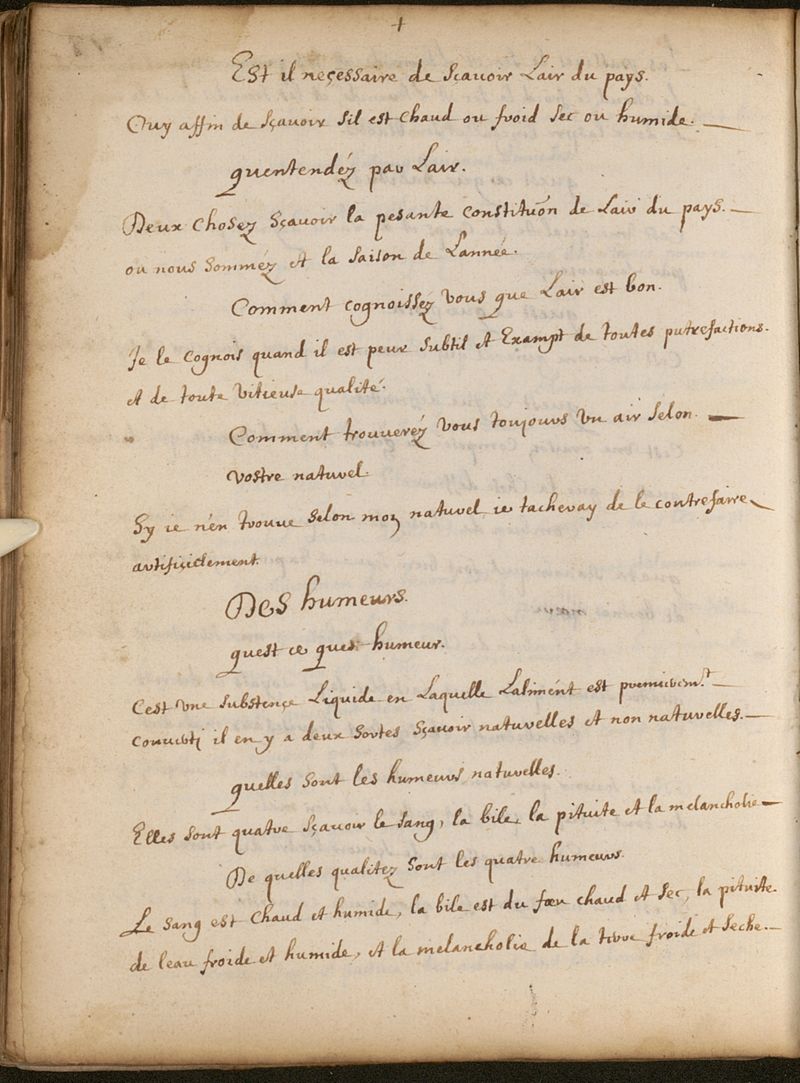 +
Est il neçessaire de sçauoir Lair du pays.
Ouy affin de sçauoir sil est chaud ou froid sec ou humide.
quentendéz par Lair.
Deux chosez sçauoir la pesante constituõn de Lair du pays.
ou nous sommez et la saison de Lannée.
Comment cognoissez vous que Lair est bon.
Je le cognois quand il est peur subtil et Exampt de toutes putrefactions.
et de toute vitieuse qualité.
Comment trouueréz vous toujours vn air selon.
vostre naturel.
Sy ie n'en trouue selon moy naturel ie tacheray de le contrefaire
artifiçielement.
Des humeurs.
quest ce ques humeur.
Cest vne substençe Liquide en Laquelle Laliment est premierem.t
conuerti il en y a deux sortes sçauoir naturelles et non naturelles.
quelles sont les humeurs naturelles.
Elles sont quatre sçauoir le sang, la bile, la pituite et la melancholie
De quelles qualitez sont les quatre humeurs.
Le sang est chaud et humide, la bile est du feu chaud et sec, la pituite.
de leau froide et humide, et la melancholie de la terre froide et seche.